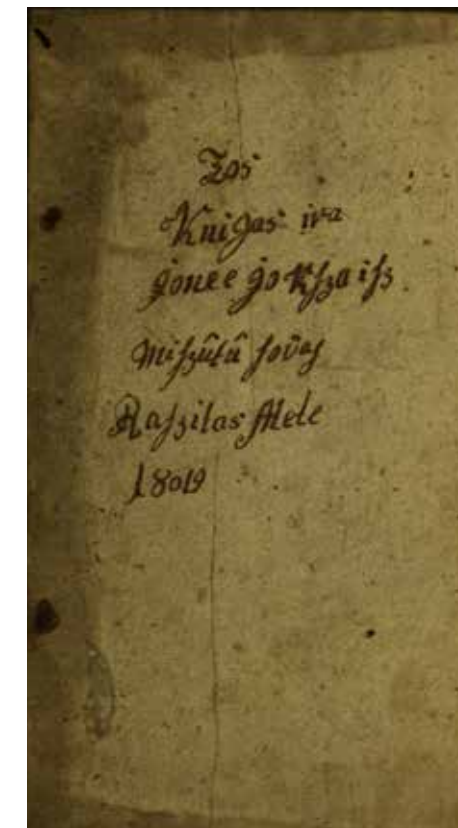 Zos
Knigas ira
Jonee Jokſza iſz
Miſzûtû ſoûaſ
Raſzilas Mete
18019